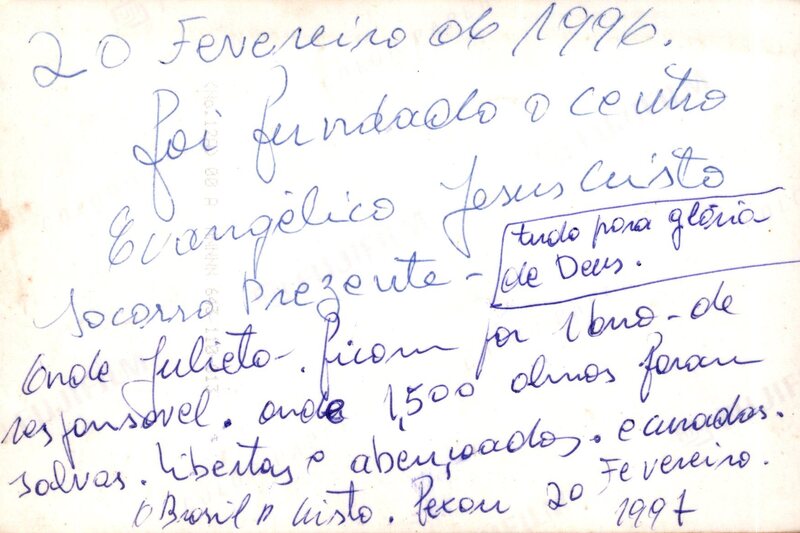 20 Fevereiro de 1996.
foi fundado o centro
Evangélico Jesus Cristo
socorro Prezente -
tudo para glória
de Deus.
Onde Julieta. ficam por 1 ano - de
responsavel. onde 1,500 almas foram
salvas. libertas e abençoadas. e curadas.
O Brasil p Cristo. 20 Fevereiro.
1997